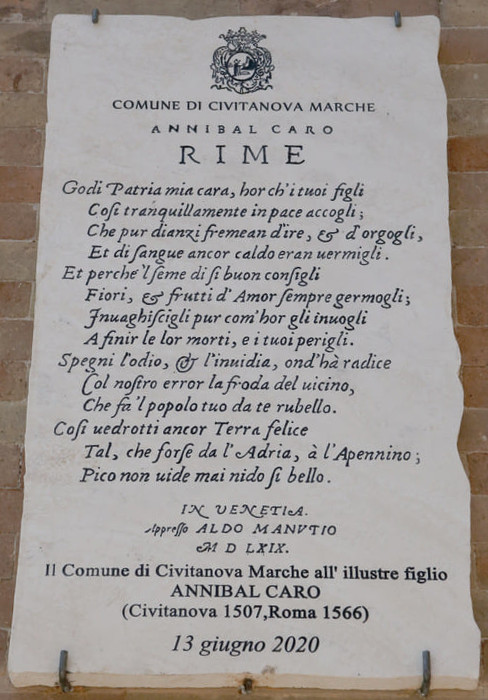 COMUNE DI CIVITANOVA MARCHE
ANNIBAL CARO
RIME
Godi Patria mia cara, hor ch'i tuoi figli
Coſi tranquillamente in pace accogli;
Che pur dianzi fremean d'ire, & d'orgogli,
Et di ſangue ancor caldo eran uermigli.
Et perche 'l ſeme di ſi buon conſigli
Fiori, & frutti d'Amor ſempre germogli;
Inuaghiſcigli pur com'hor gli inuogli
A finir le lor morti, e i tuoi perigli.
Spegni l'odio, & l'inuidia, ond'hà radice
Col noſtro error la froda del uicino,
Che fa 'l popolo tuo da te rubello.
Coſi uedrotti ancor Terra felice
Tal, che forſe da l'Adria, à l'Apennino;
Pico non uide mai nido ſi bello.
IN VENETIA.
Appreſſo ALDO MANVTIO
M D LXIX.
Il Comune di Civitanova Marche all' illustre figlio
ANNIBAL CARO
(Civitanova 1507,Roma 1566)
13 giugno 2020